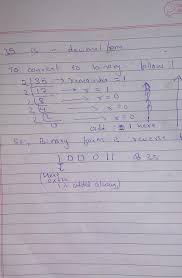 35 is - decimal form
To convert to binary follow ↓
2 | 35 → remainder = 1
2 | 17 → r = 1
2 | 8 → r = 0
2 | 4 → r = 0
2 | 2 → r = 0
add 1 here
So, Binary form is reverse
1 0 0 0 1 1 of 35
extra
is added always)